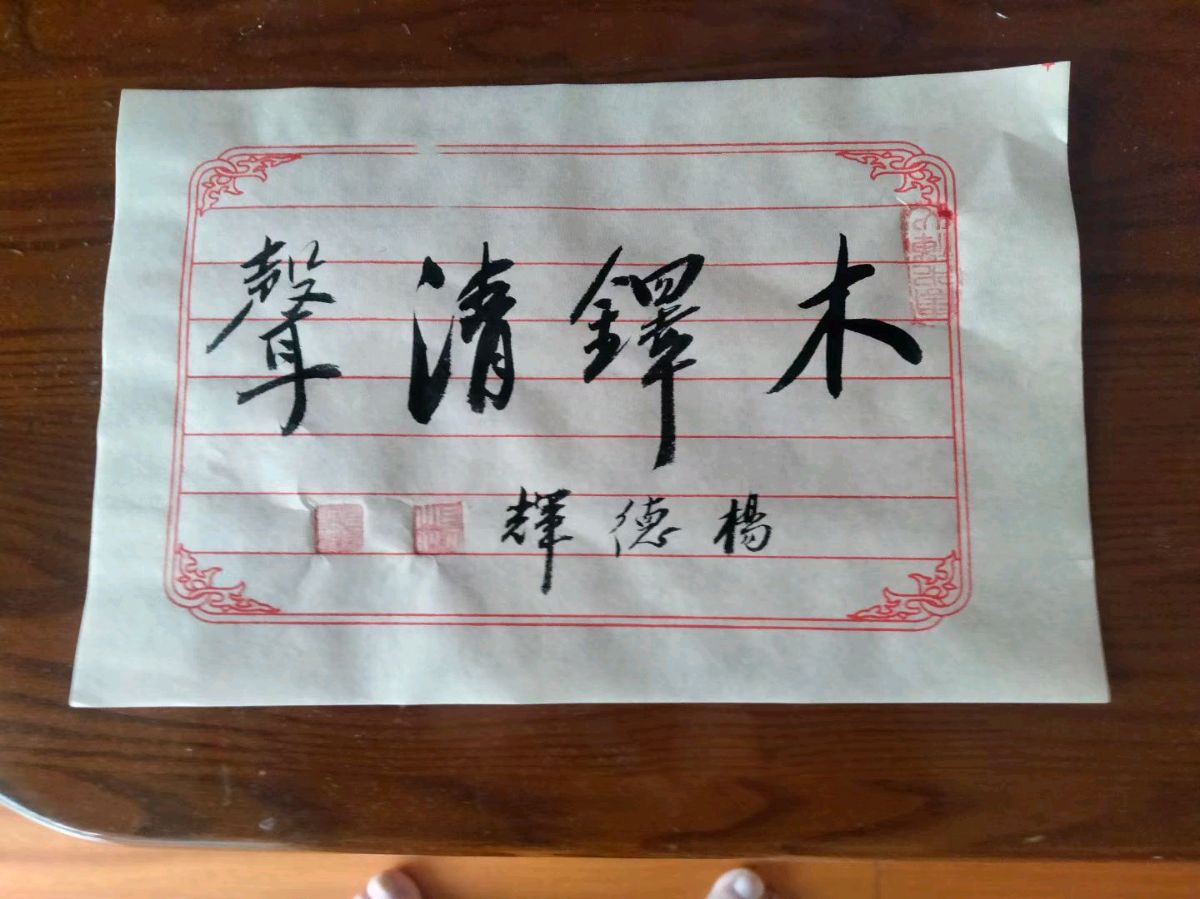 木鐸清聲
楊德輝